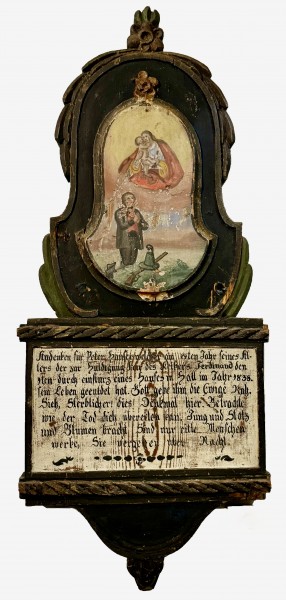 Andenken für Peter im 18ten Jahr seines Al-
ters der zur Huldigung Ferdinand den
1ten durch einsturz eines Hauses in Hall im Jahr 1838.
sein Leben geendet hat. Gott gebe ihm die Ewige Ruh.
Sieh, Sterblicher! dies Denkmal hier. Betrachte
wie der Tod dich übereilen kan. Jung und Stolz
und Blumen Sind nur Menschen
werke, Sie über Nacht.